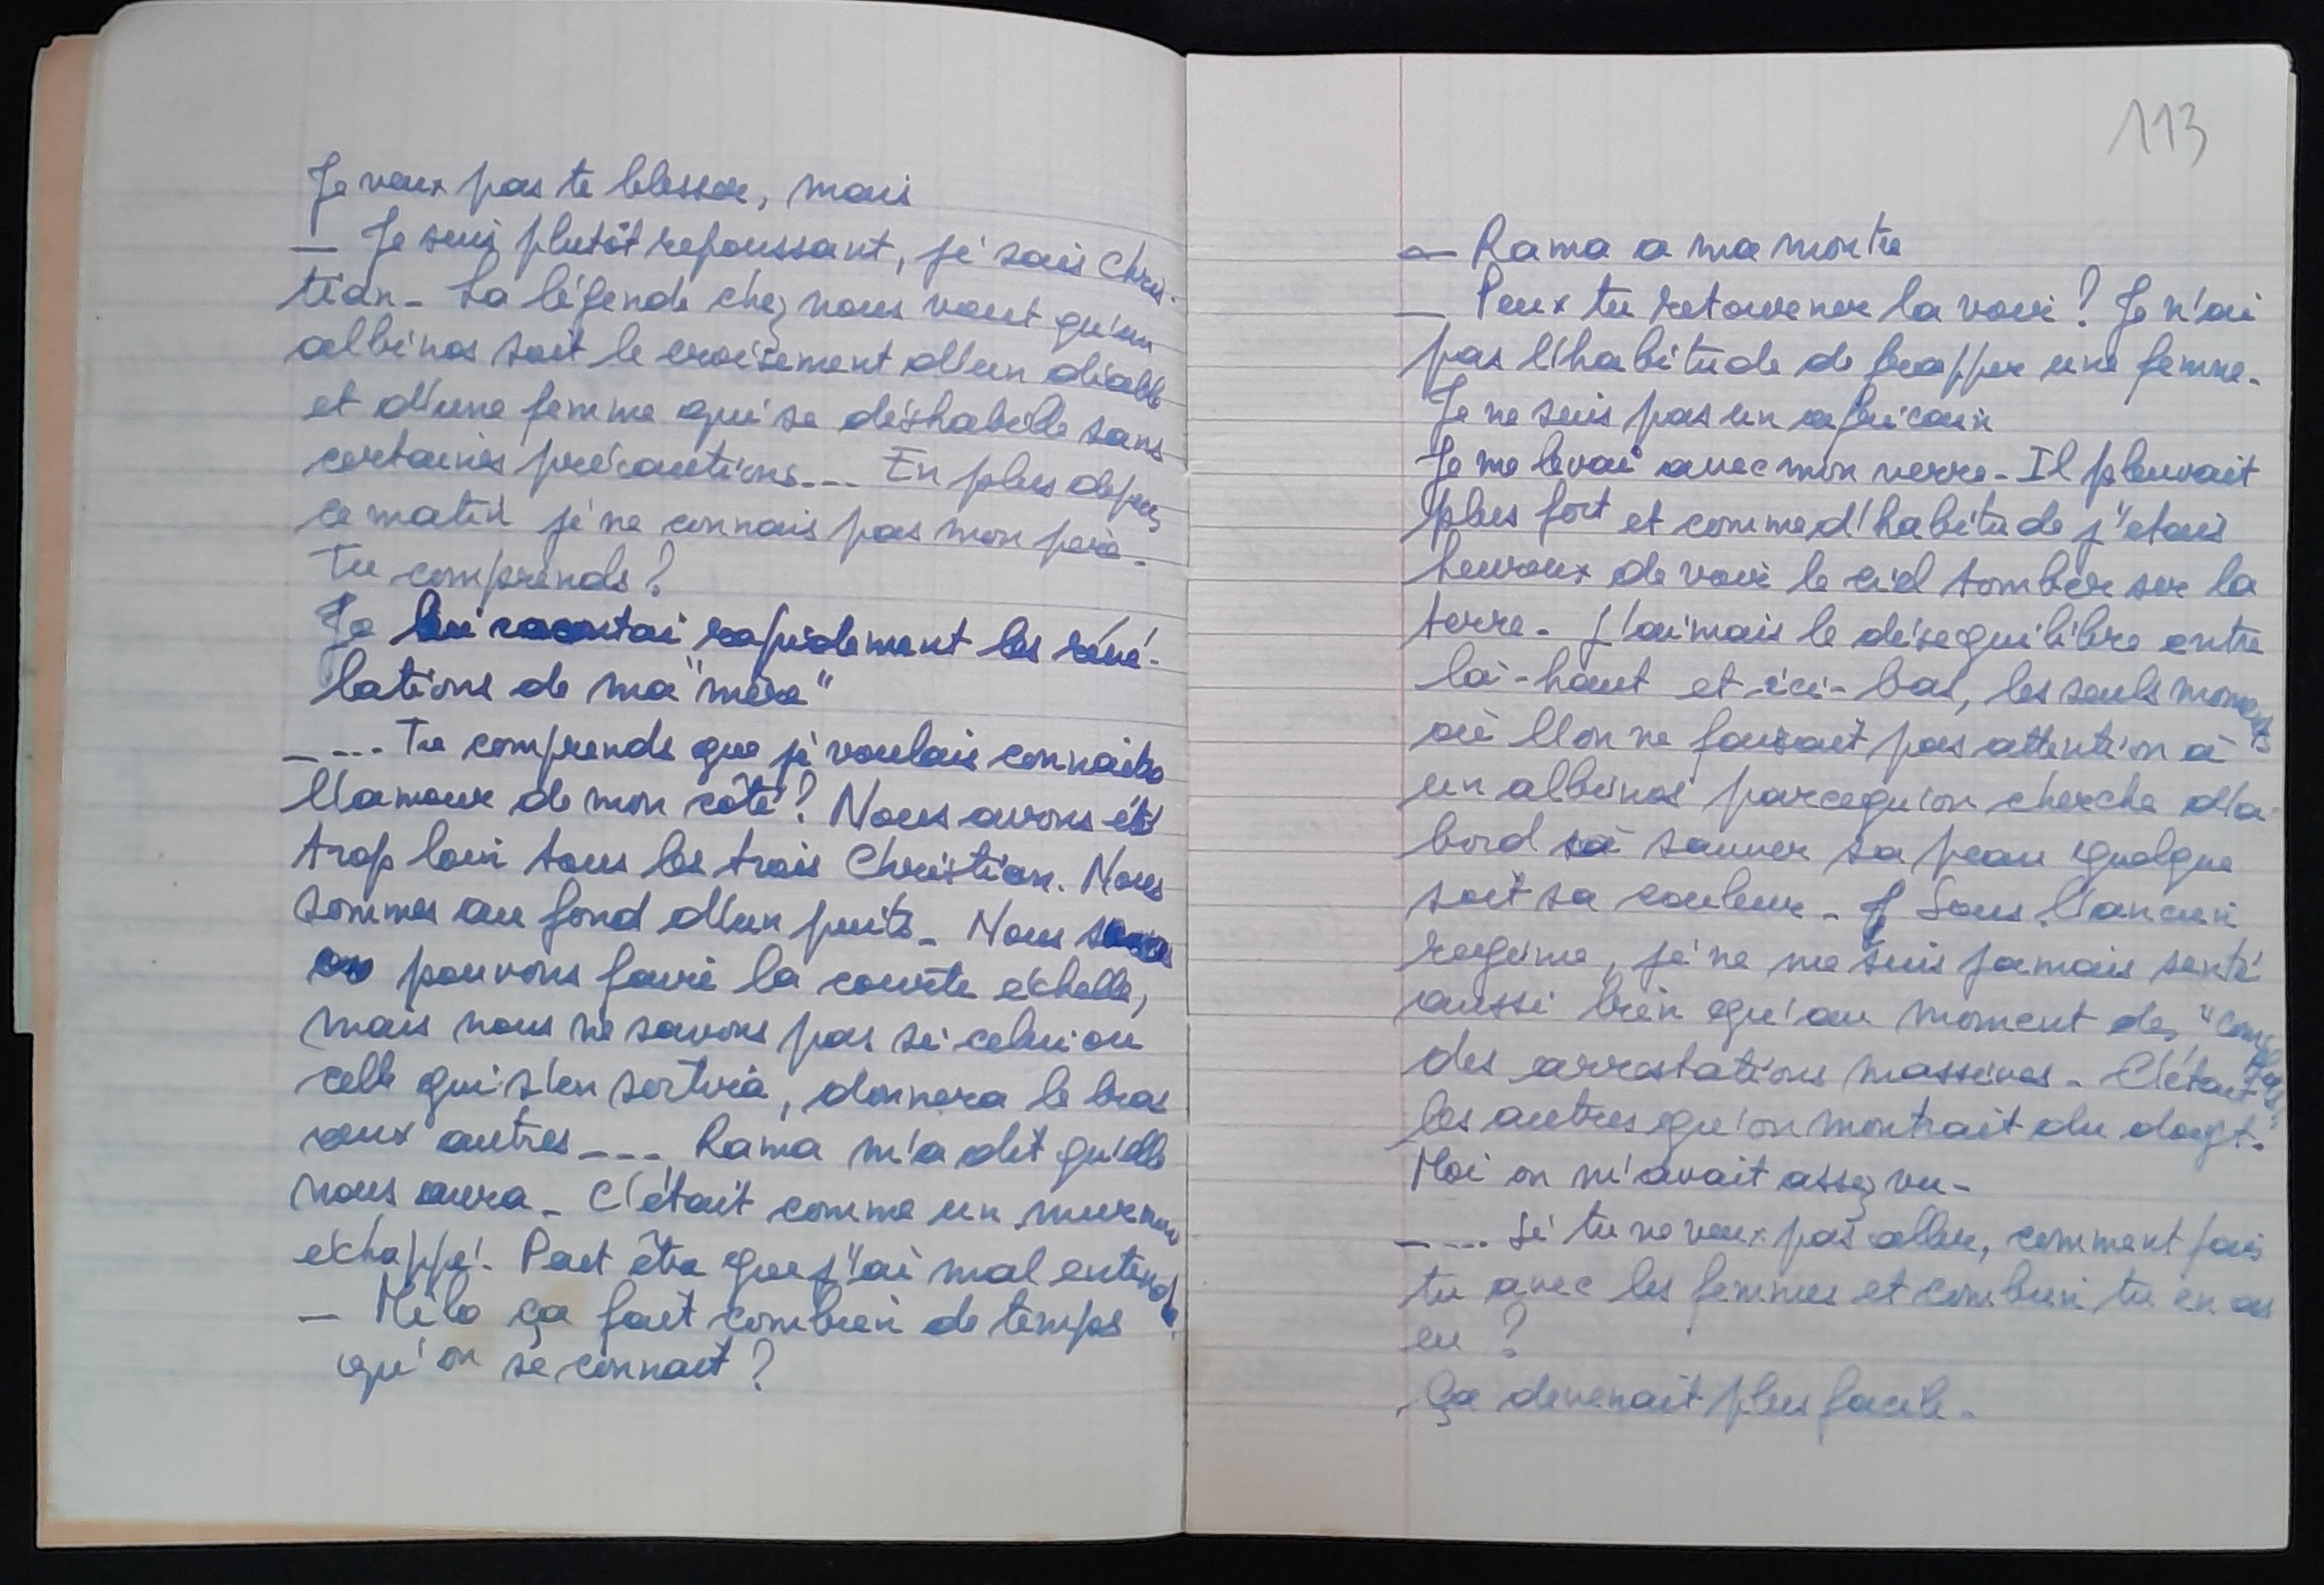 Je veux pas te blesser, mais
— Je suis plutôt repoussant, je sais Chris-
tian - La légende chez nous veut qu'un
albinos soit le croisement d'un diable
et d'une femme qui se déshabille sans
certaines précautions... En plus depuis
ce matin je ne connais pas mon père -
Tu comprends ?
Je lui racontai rapidement les révé-
lations de ma "mère"
— ... Tu comprends que je voulais connaitre
l'amour de mon côté ? Nous avons été
trop loin tous les trois Christian. Nous
sommes au fond d'un puits - Nous
pouvons faire la courte échelle,
mais nous ne savons pas si celui ou
celle qui s'en sortira, donnera le bras
aux autres ... Rama m'a dit qu'elle
nous aura - C'était comme un murmure
échappé. Peut être que j'ai mal entendu.
— Milo ça fait combien de temps
qu'on se connait ?
113
— Rama a ma montre
— Peux tu retourner la voir ? Je n'ai
pas l'habitude de frapper une femme -
Je ne suis pas un africain
Je me levai avec mon verre - Il pleuvait
plus fort et comme d'habitude j'étais
heureux de voir le ciel tomber sur la
terre - J'aimais le déséquilibre entre
là-haut et ici-bas, les seuls moments
où l'on ne faisait pas attention à
un albinos parcequ'on cherche d'a-
bord à sauver sa peau quelque
soit sa couleur - Sous l'ancien
regime, je ne me suis jamais senti
aussi bien qu'au moment des "complots",
des arrestations massives - C'était
les autres qu'on montrait du doigt.
Moi on m'avait assez vu -
— ... Si tu ne veux pas aller, comment fais
tu avec les femmes et combien tu en as
eu ?
Ça devenait plus facile -